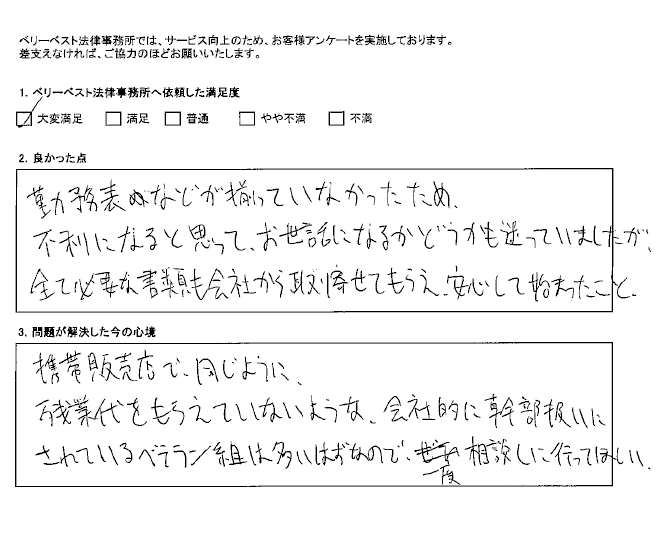 ベリーベスト法律事務所では、サービス向上のため、お客様アンケートを実施しております。
差支えなければ、ご協力のほどお願いいたします。
1. ベリーベスト法律事務所へ依頼した満足度
大変満足 満足 普通 やや不満 不満
2. 良かった点
勤務表などが揃っていなかったため、
不利になると思って、お世話になるかどうかも迷っていましたが、
全て必要な書類も会社から取り寄せてもらえ、安心して始まったこと。
3. 問題が解決した今の心境
携帯販売店で、同じように、
残業代をもらえていないような、会社的に幹部扱いに
されているベテラン組は多いはずなので、ぜひ一度相談しに行ってほしい。